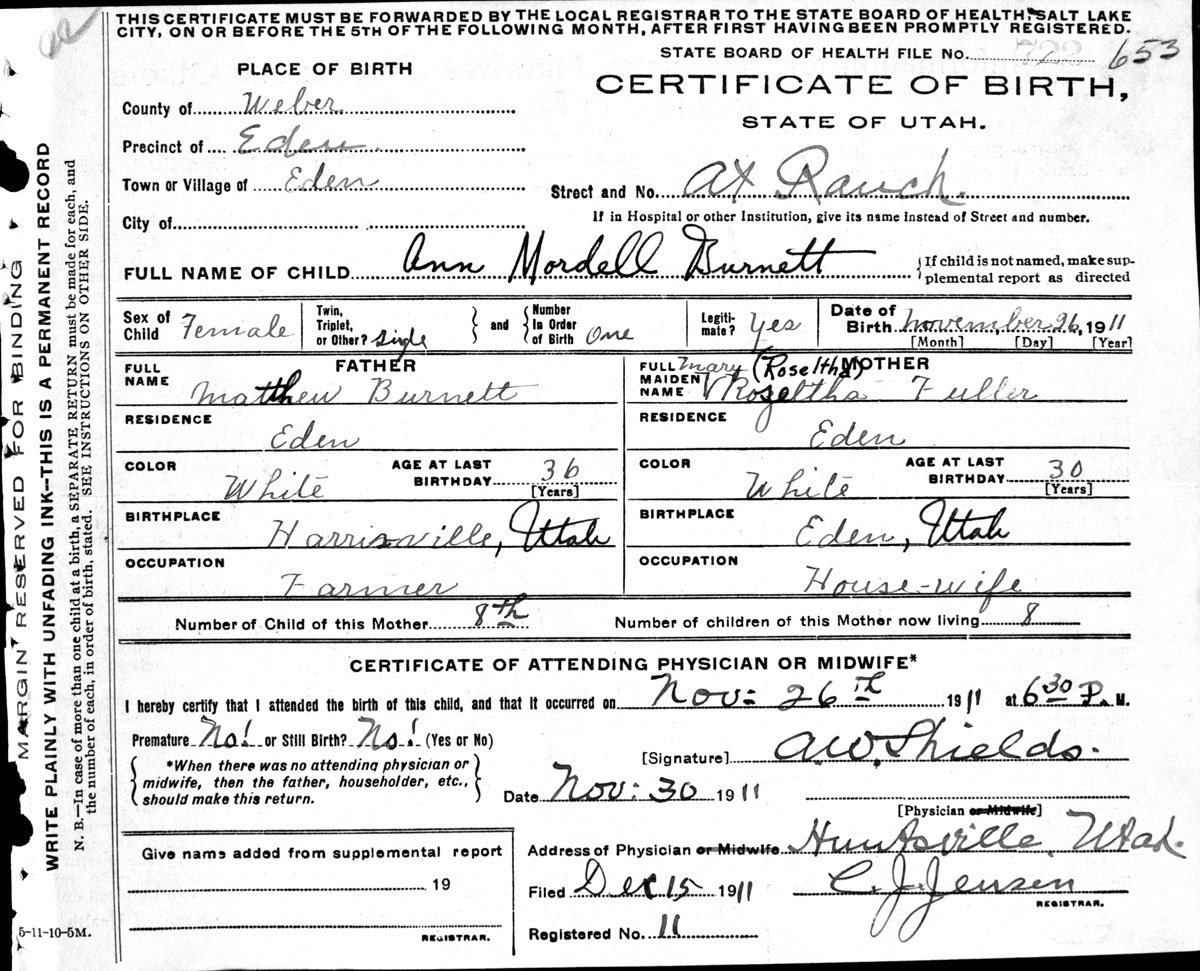 THIS CERTIFICATE MUST BE FORWARDED BY THE LOCAL REGISTRAR TO THE STATE BOARD OF HEALTH, SALT LAKE
CITY, ON OR BEFORE THE 5TH OF THE FOLLOWING MONTH, AFTER FIRST HAVING BEEN PROMPTLY REGISTERED.
STATE BOARD OF HEALTH FILE No. 653
PLACE OF BIRTH
CERTIFICATE OF BIRTH,
STATE OF UTAH.
County of Weber
Precinct of Eden
Town or Village of Eden
Street and No. At Ranch.
City of
If in Hospital or other Institution, give its name instead of Street and number.
FULL NAME OF CHILD Ann Mordell Burnett
{If child is not named, make sup-
plemental report as directed
Sex of Child Female
Twin, Triplet, or Other? Single } and { Number In Order of Birth One
Legiti-mate? Yes
Date of Birth November 26, 1911
[Month] [Day] [Year]
FATHER
FULL NAME Matthew Burnett
RESIDENCE
Eden
COLOR White
AGE AT LAST BIRTHDAY 36
[Years]
BIRTHPLACE
Harrisville, Utah
OCCUPATION
Farmer
MOTHER
FULL MAIDEN NAME Mary (Roseltha) Roseltha Fuller
RESIDENCE
Eden
COLOR White
AGE AT LAST BIRTHDAY 30
[Years]
BIRTHPLACE
Eden, Utah
OCCUPATION
House-wife
Number of Child of this Mother 8th
Number of children of this Mother now living 8
CERTIFICATE OF ATTENDING PHYSICIAN OR MIDWIFE*
I hereby certify that I attended the birth of this child, and that it occurred on Nov: 26th 1911 at 6 30 P. M.
Premature No! or Still Birth? No! (Yes or No)
*When there was no attending physician or
midwife, then the father, householder, etc.,
should make this return.
[Signature] A.W. Shields.
Date Nov: 30 1911
[Physician or Midwife]
Address of Physician or Midwife Huntsville, Utah.
Filed Dec 15 1911 C. J. Jensen
REGISTRAR.
Registered No. 11
Give name added from supplemental report
19
REGISTRAR.
5-11-10-5M.
MARGIN RESERVED FOR BINDING
WRITE PLAINLY WITH UNFADING INK—THIS IS A PERMANENT RECORD
N. B.—In case of more than one child at a birth, a SEPARATE RETURN must be made for each, and
the number of each, in order of birth, stated. SEE INSTRUCTIONS ON OTHER SIDE.